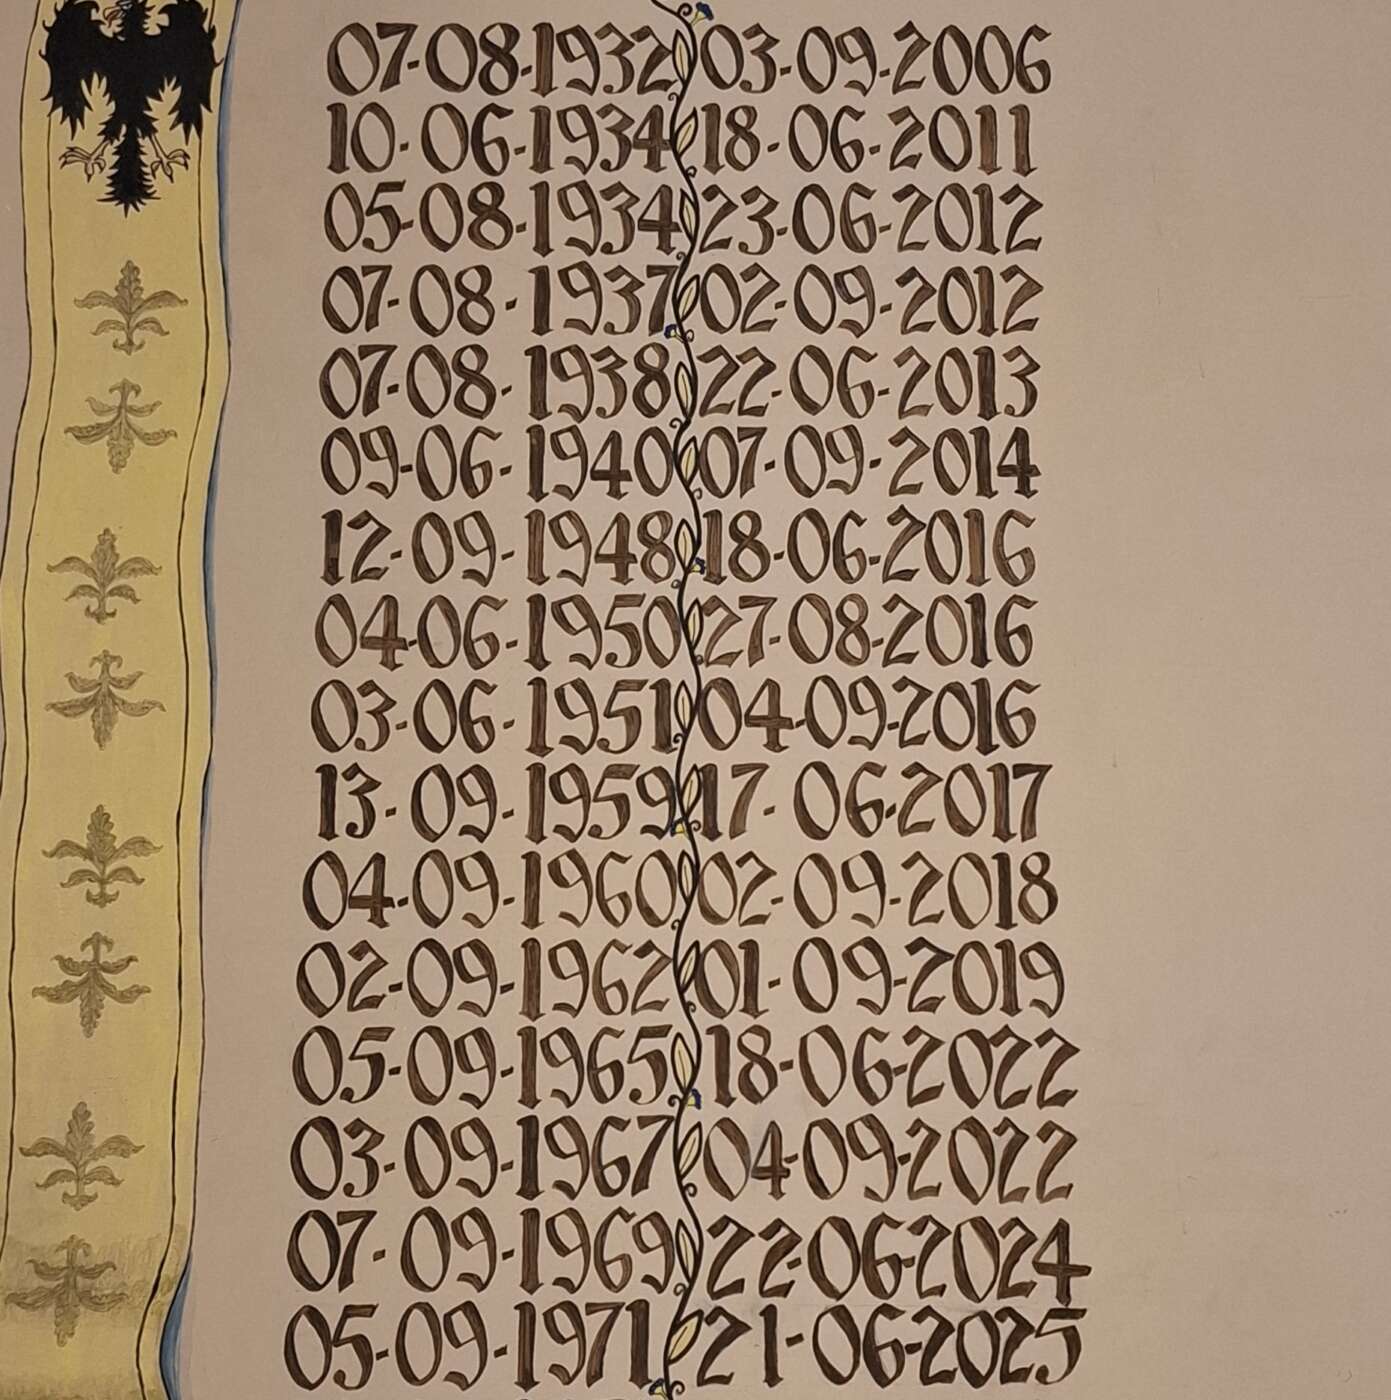 07-08-1932 03-09-2006
10-06-1934 18-06-2011
05-08-1934 23-06-2012
07-08-1937 02-09-2012
07-08-1938 22-06-2013
09-06-1940 07-09-2014
12-09-1948 18-06-2016
04-06-1950 27-08-2016
03-06-1951 04-09-2016
13-09-1959 17-06-2017
04-09-1960 02-09-2018
02-09-1962 01-09-2019
05-09-1965 18-06-2022
03-09-1967 04-09-2022
07-09-1969 22-06-2024
05-09-1971 21-06-2025